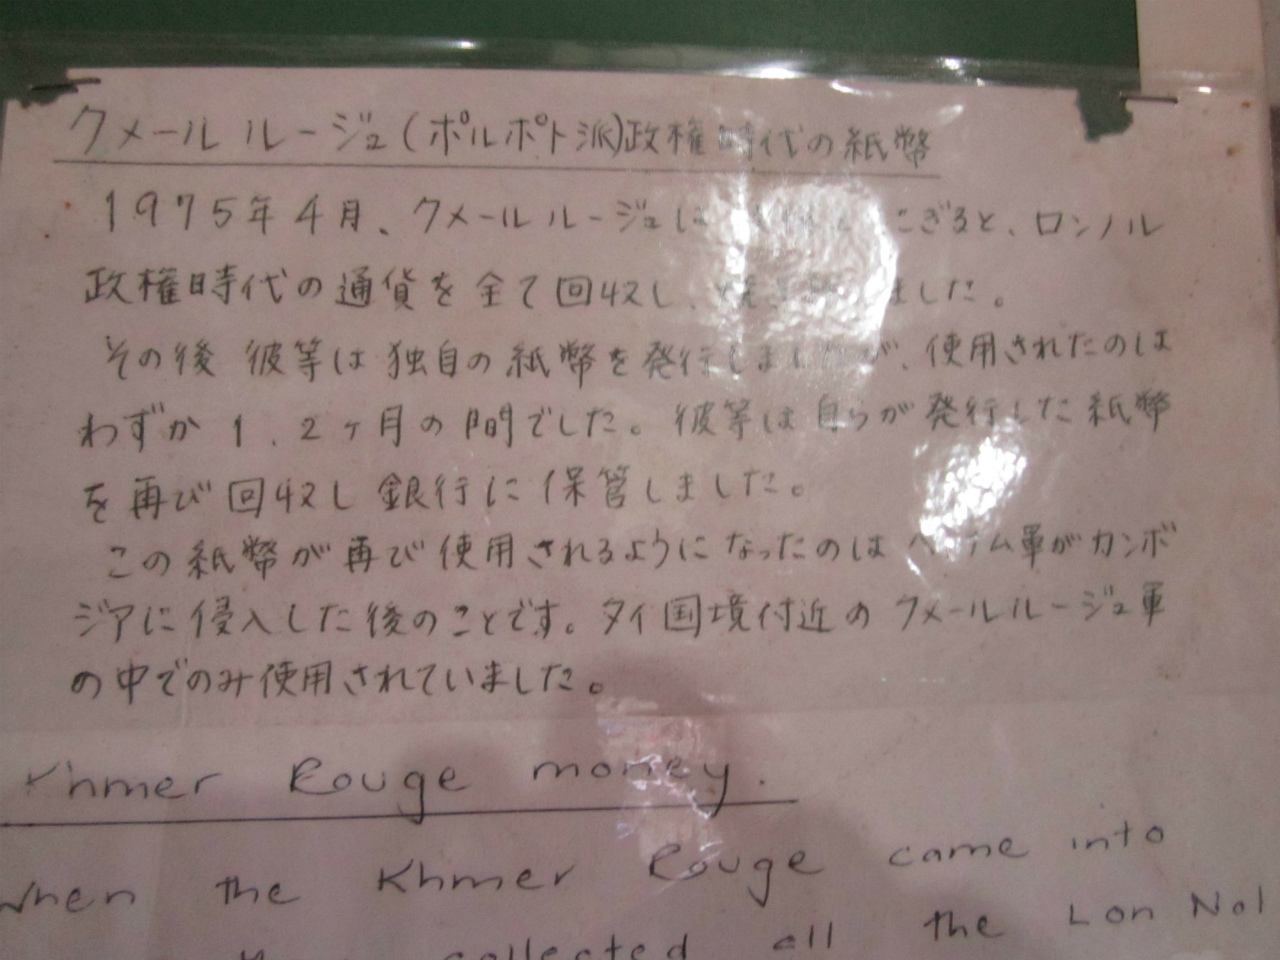 クメール ルージュ(ポルポト派)政権時代の紙幣
1975年4月、クメール ルージュは にぎると、ロンノル
政権時代の通貨を全て回収し、 ました。
その後 彼等は 独自の紙幣を発行しましたが、使用されたのは
わずか 1、2ヶ月の間でした。彼等は自らが発行した紙幣
を再び回収し 銀行に保管しました。
この紙幣が再び使用されるようになったのは ベトナム軍がカンボ
ジアに侵入した後のことです。タイ国境付近の クメールルージュ軍
の中でのみ使用されていました。
Khmer Rouge money.
When the Khmer Rouge came into
collected all the Lon Nol